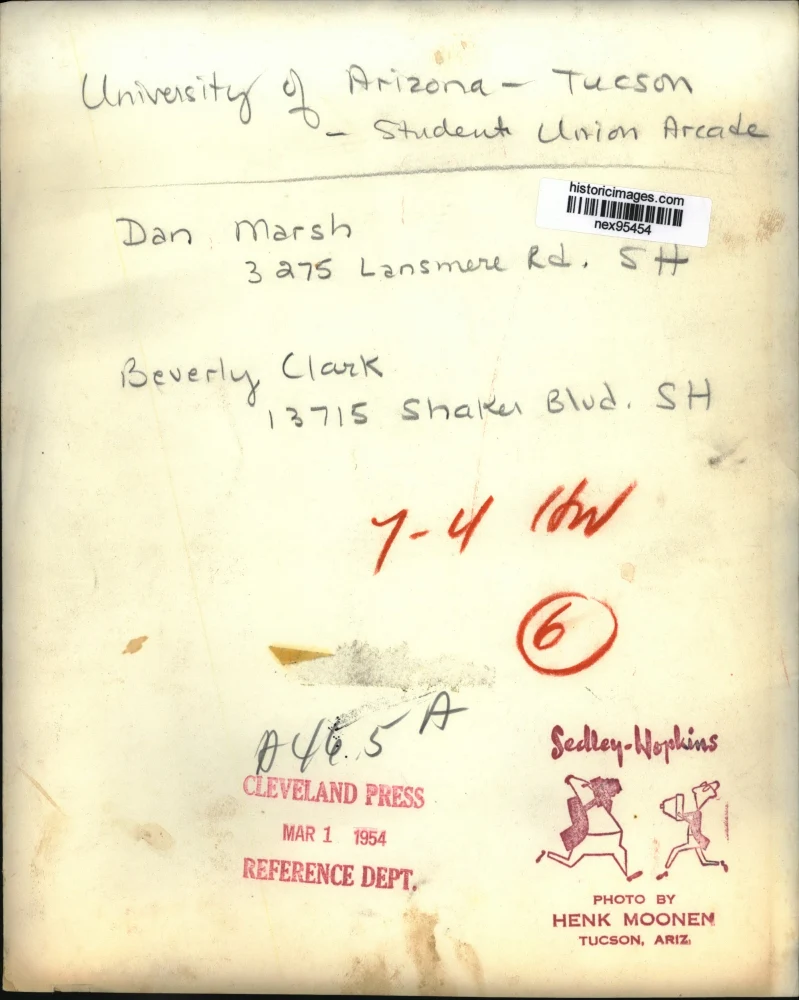 University of Arizona - Tucson
- Student Union Arcade
historicimages.com
nex95454
Dan Marsh
3275 Lansmere Rd. SH
Beverly Clark
13715 Shaker Blvd. SH
7-4
6
A46.5 A
CLEVELAND PRESS
MAR 1 1954
REFERENCE DEPT.
Sedley-Hopkins
PHOTO BY
HENK MOONEN
TUCSON, ARIZ.